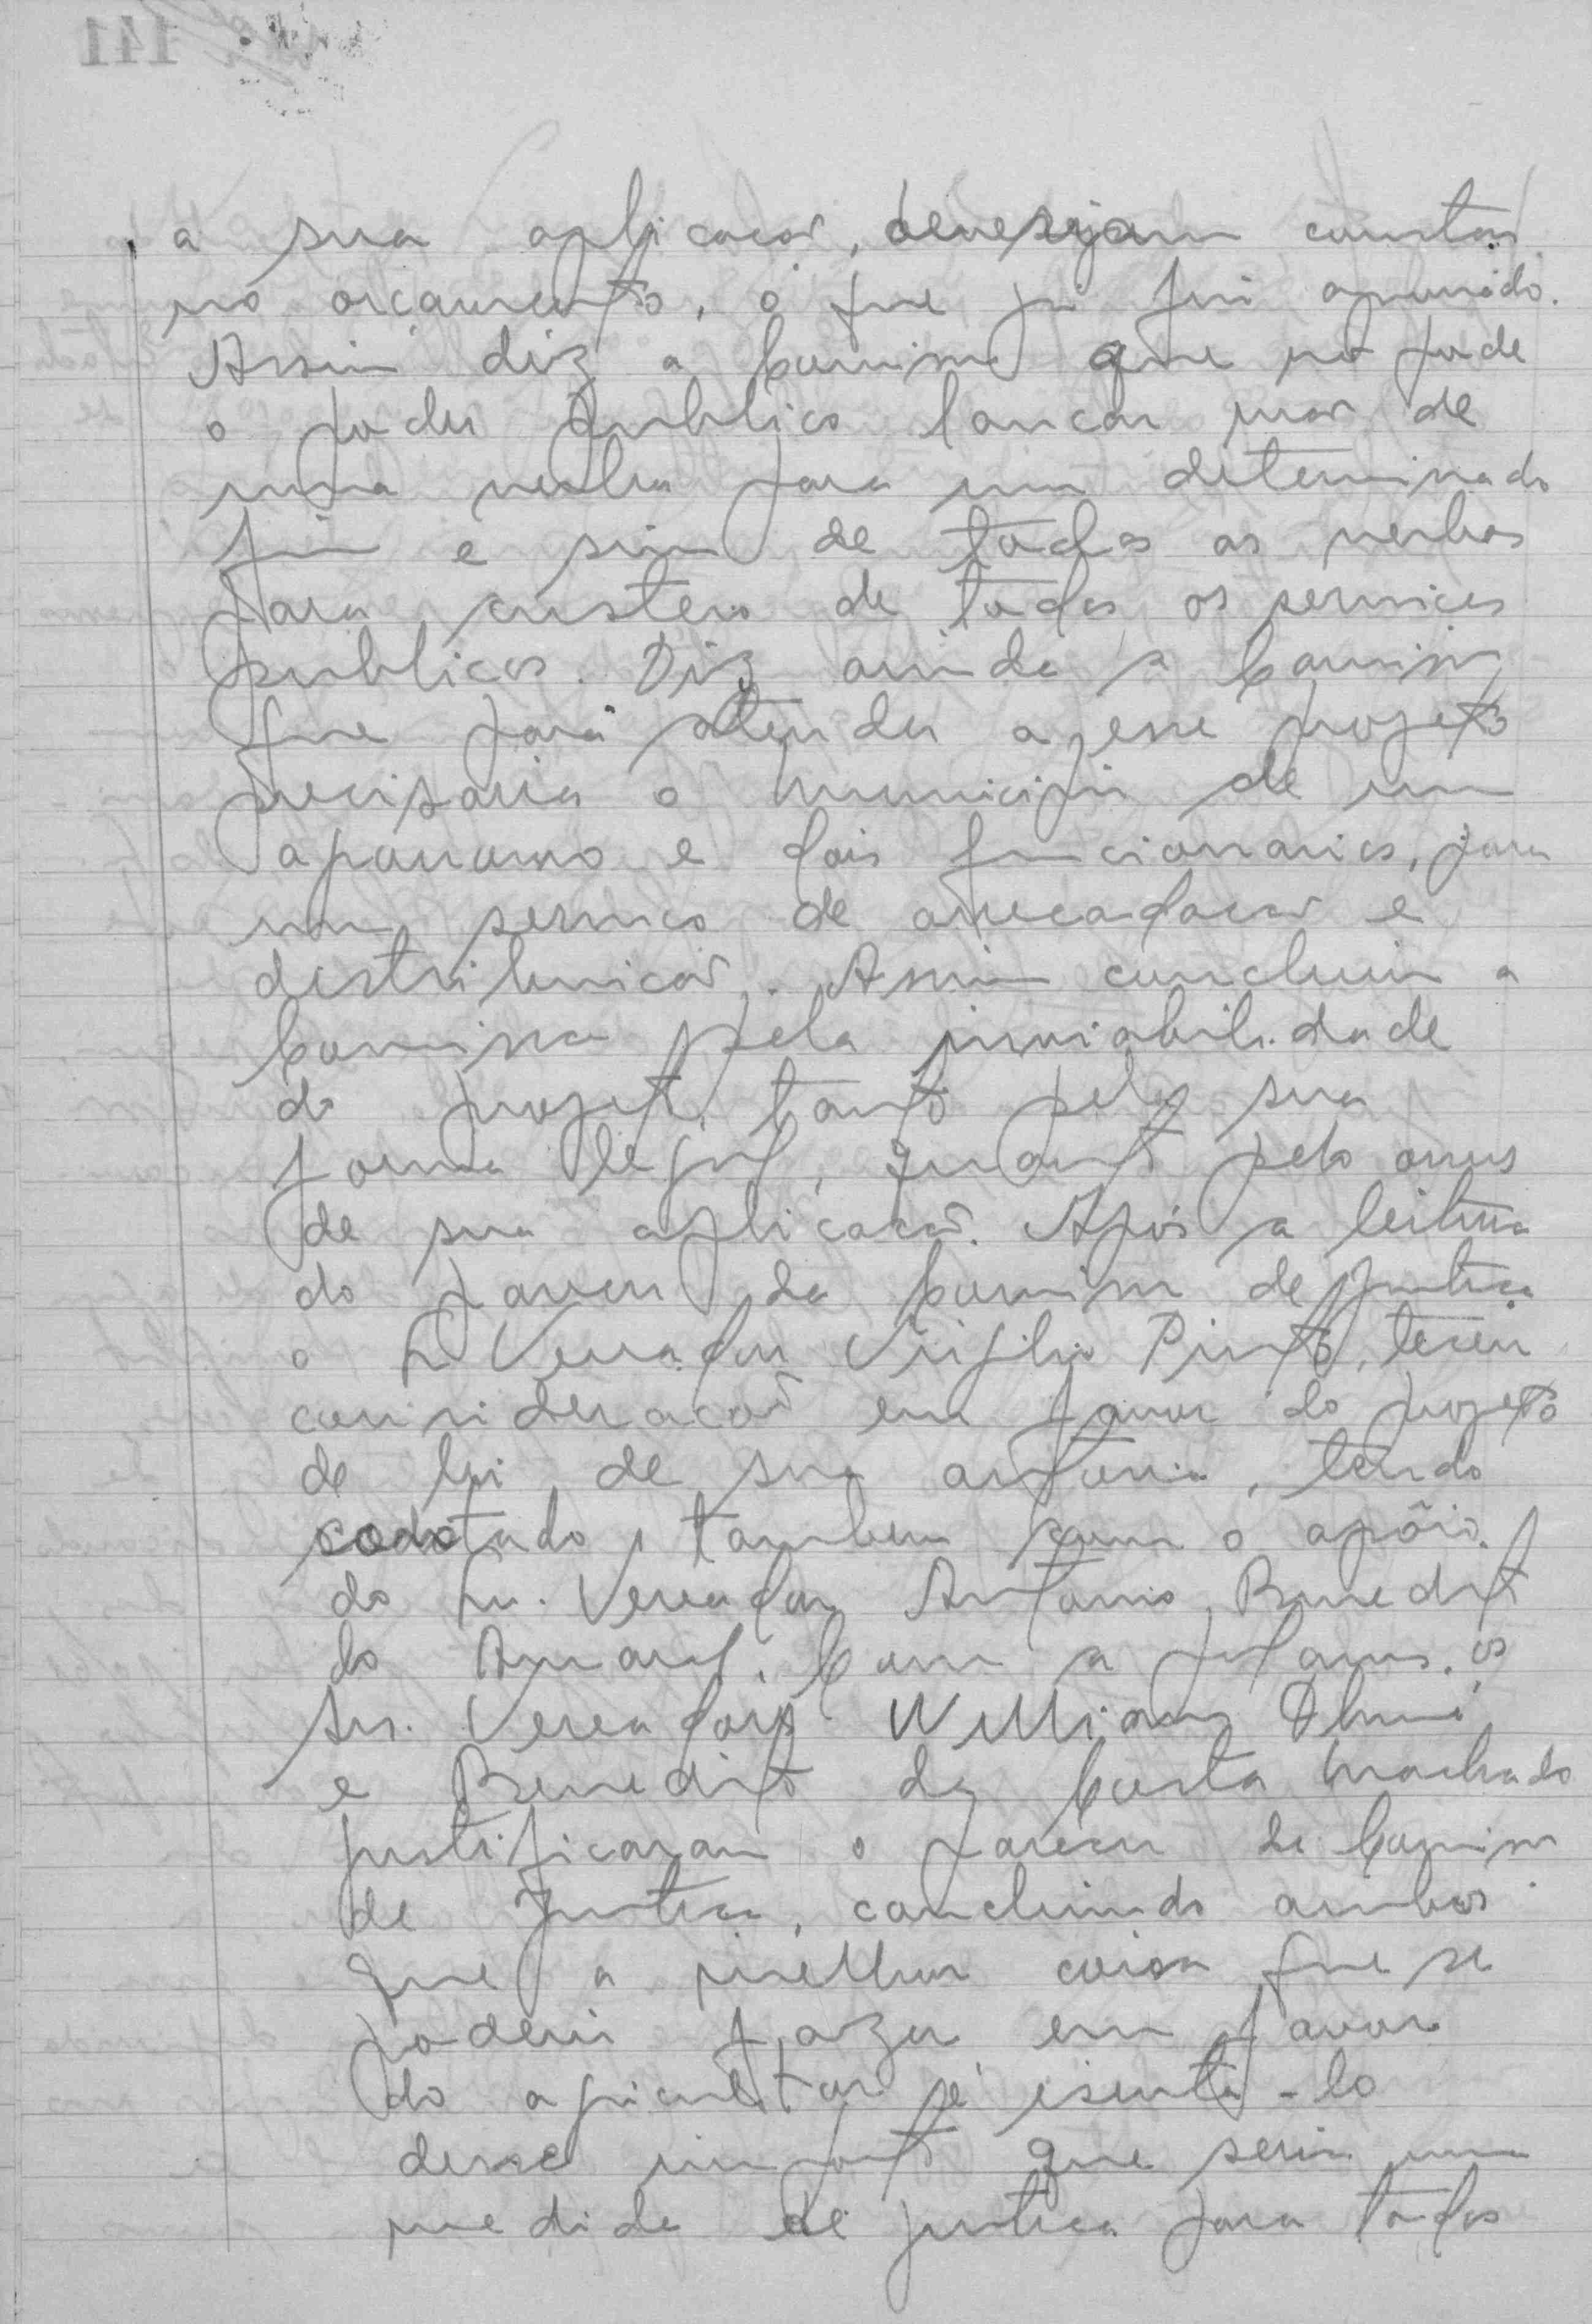 a sua aplicacaõ, devesejam constar
no orcamento, o que ja foi aprovado.
Assim diz a Comissaõ que naõ pode
o poder publico lancar maõ de
uma verba para um determinado
fim e sim de todas as verbas
para custeio de todos os servicos
publicos. Diz ainda a Comissaõ
que para atender a esse projeto
precisaria o municipio de um
agronomo e dois funcionarios, para
um servico de arrecadacaõ e
distribuicaõ. Assim concluiu a
Comissaõ pela inviabilidade
do projeto, tanto pela sua
forma legal, quanto pelo onus
de sua aplicacaõ. Após a leitura
do parecer da Comissaõ de Justica
o Sr Vereador Virgilio Pinto, teceu
consideracaõ em favor do projeto
de lei de sua autoria, tendo
tambem com o apôio.
do Sr. Vereador Antonio Benedito
do Amaral. Com a palavra. os
Srs. Vereadores William
e Benedito da Costa Machado
justificaram o parecer da Comissaõ
de Justica, concluindo ambos
que a melhor coisa que se
poderia fazer em favor
do agricultor é isenta-lo
desse imposto que seria uma
medida de justica para todos